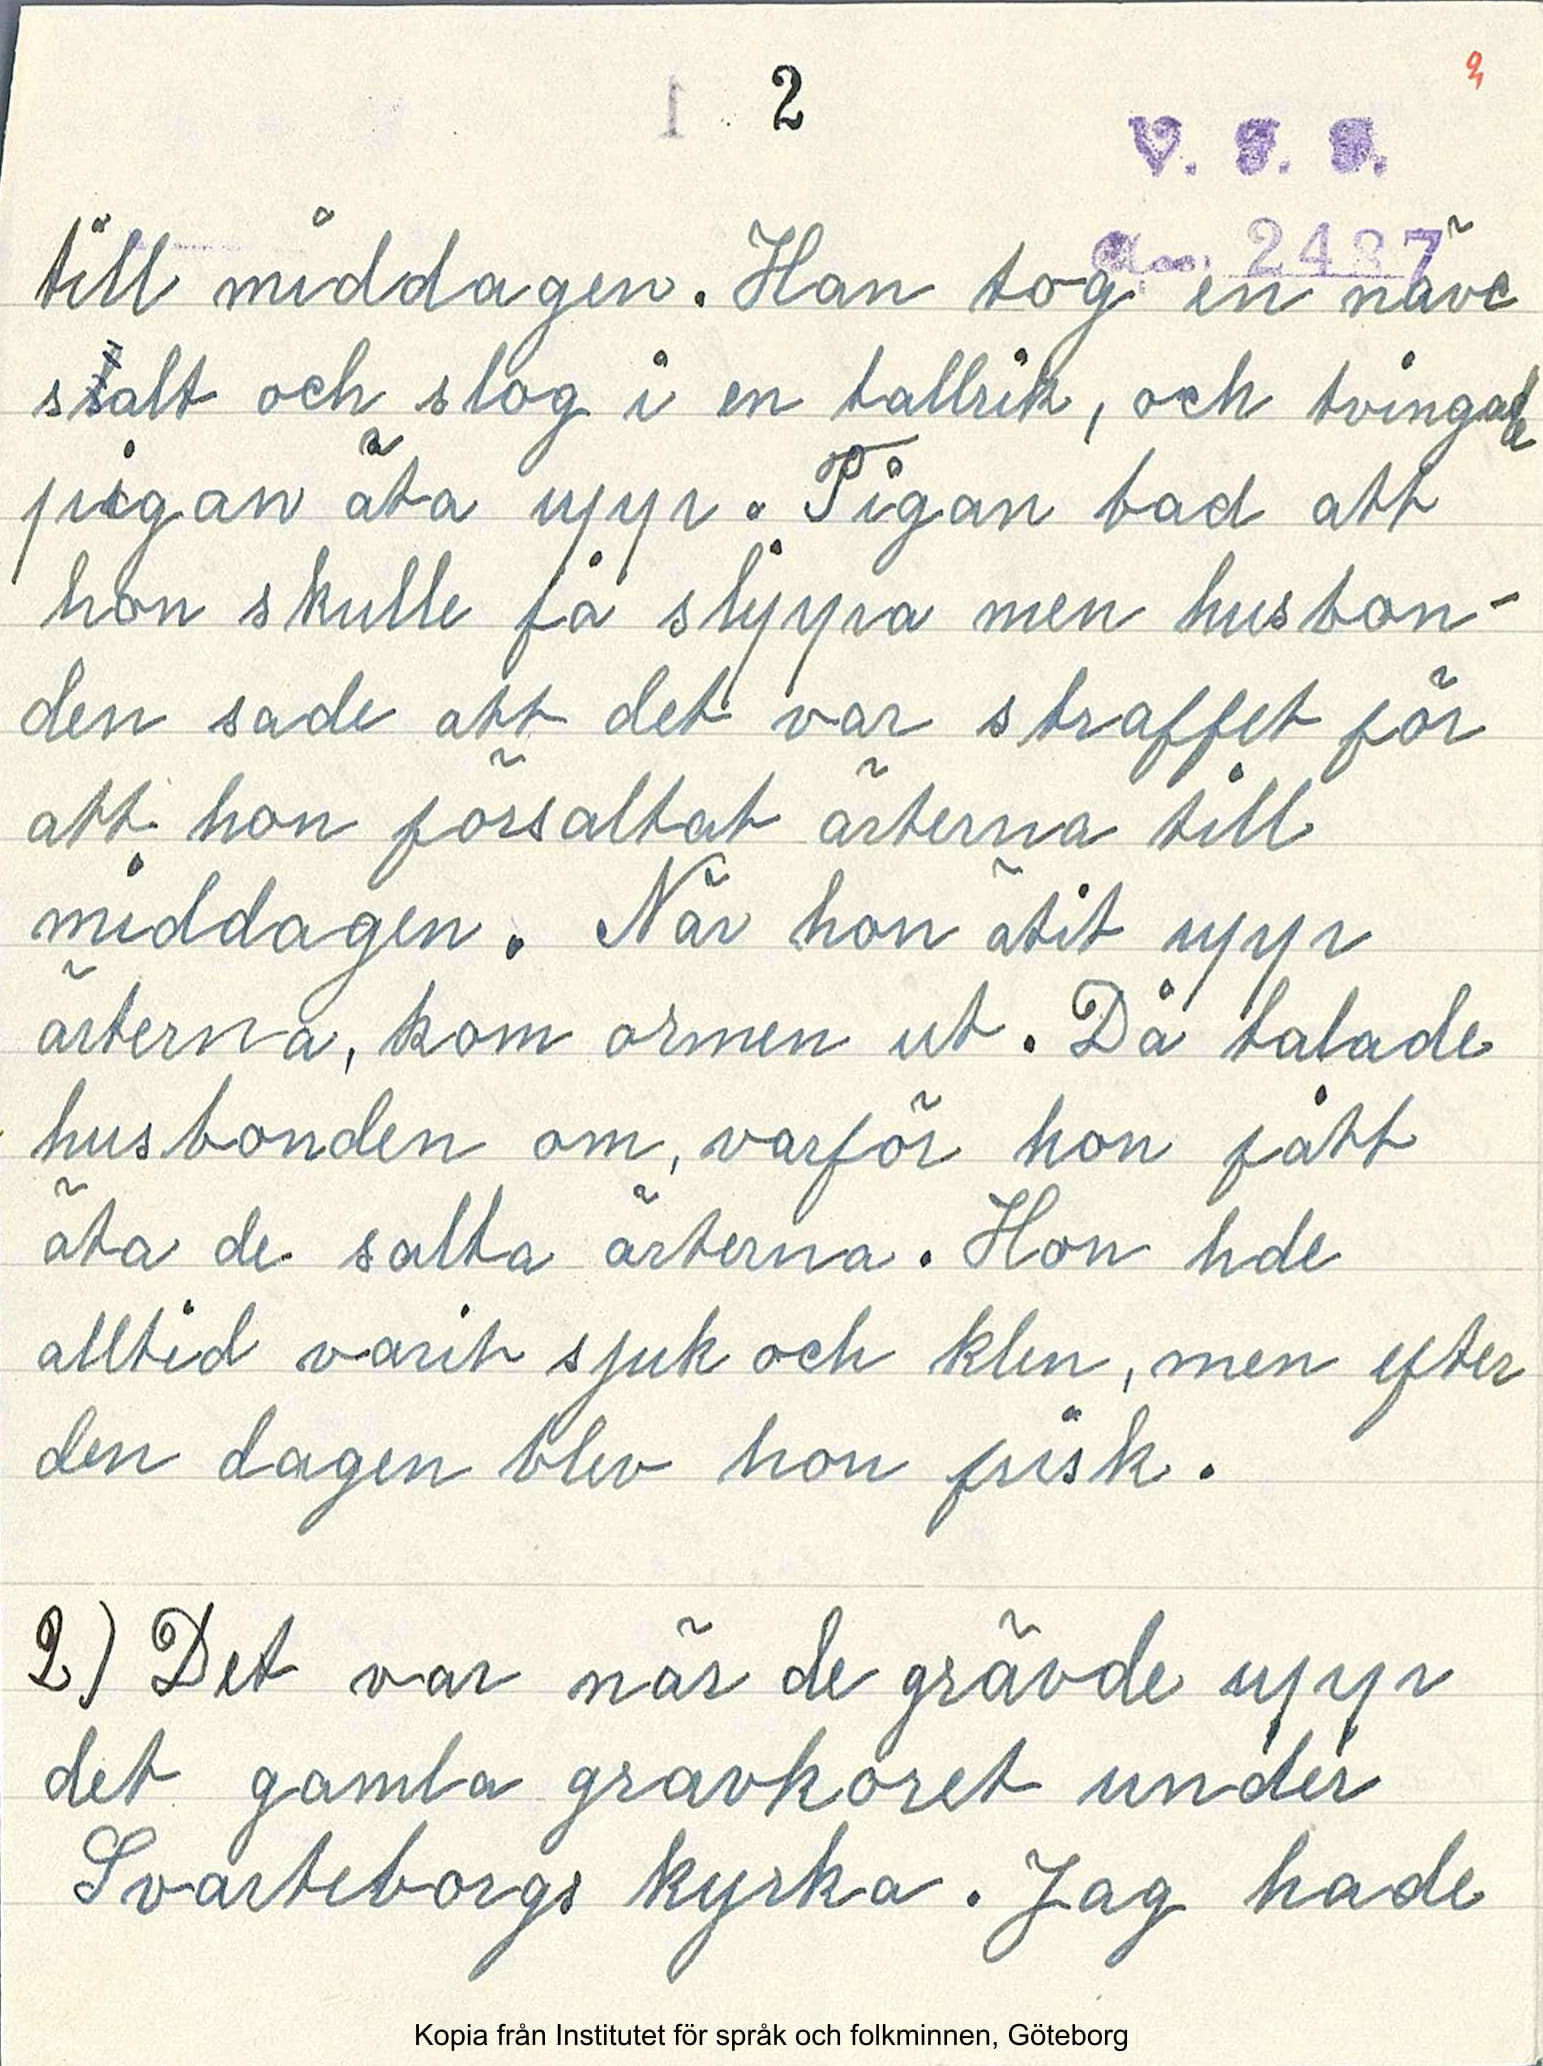 2
3
V. F. F.
till middagen. Han tog en näve
salt och slog i en tallrik, och tvingade
pigan äta upp. Pigan bad att
hon skulle få slippa men husbon-
den sade att det var straffet för
att hon försaltat ärterna till
middagen. När hon ätit upp
ärterna, kom ormen ut. Då talade
husbonden om, varför hon fått
äta de salta ärterna. Hon hde
alltid varit sjuk och klen, men efter
den dagen blev hon frisk.
2) Det var när de grävde upp
det gamla gravkoret under
Svarteborgs kyrka. Jag hade
Kopia från Institutet för språk och folkminnen, Göteborg